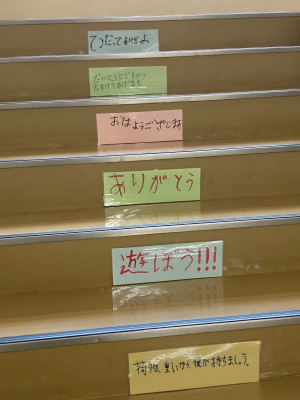 てつだってあげるよ
だいじょうぶですか?
たすけてあげます
おはようございます
ありがとう
遊ぼう!!!
荷物、重いから、僕が持ちましょう。